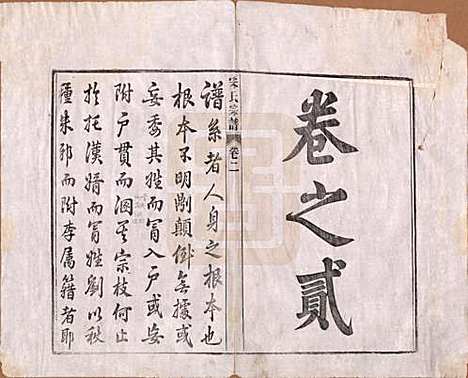 卷之貳
宋氏宗譜 卷二
譜系者人身之根本也
根本不明剛顛倒無據或
妄委其姓而冒入户或妄
附户貫而溷其宗枝何止
扵托漢婿而冒姓劉以秩
種朱邪而附李属籍者耶